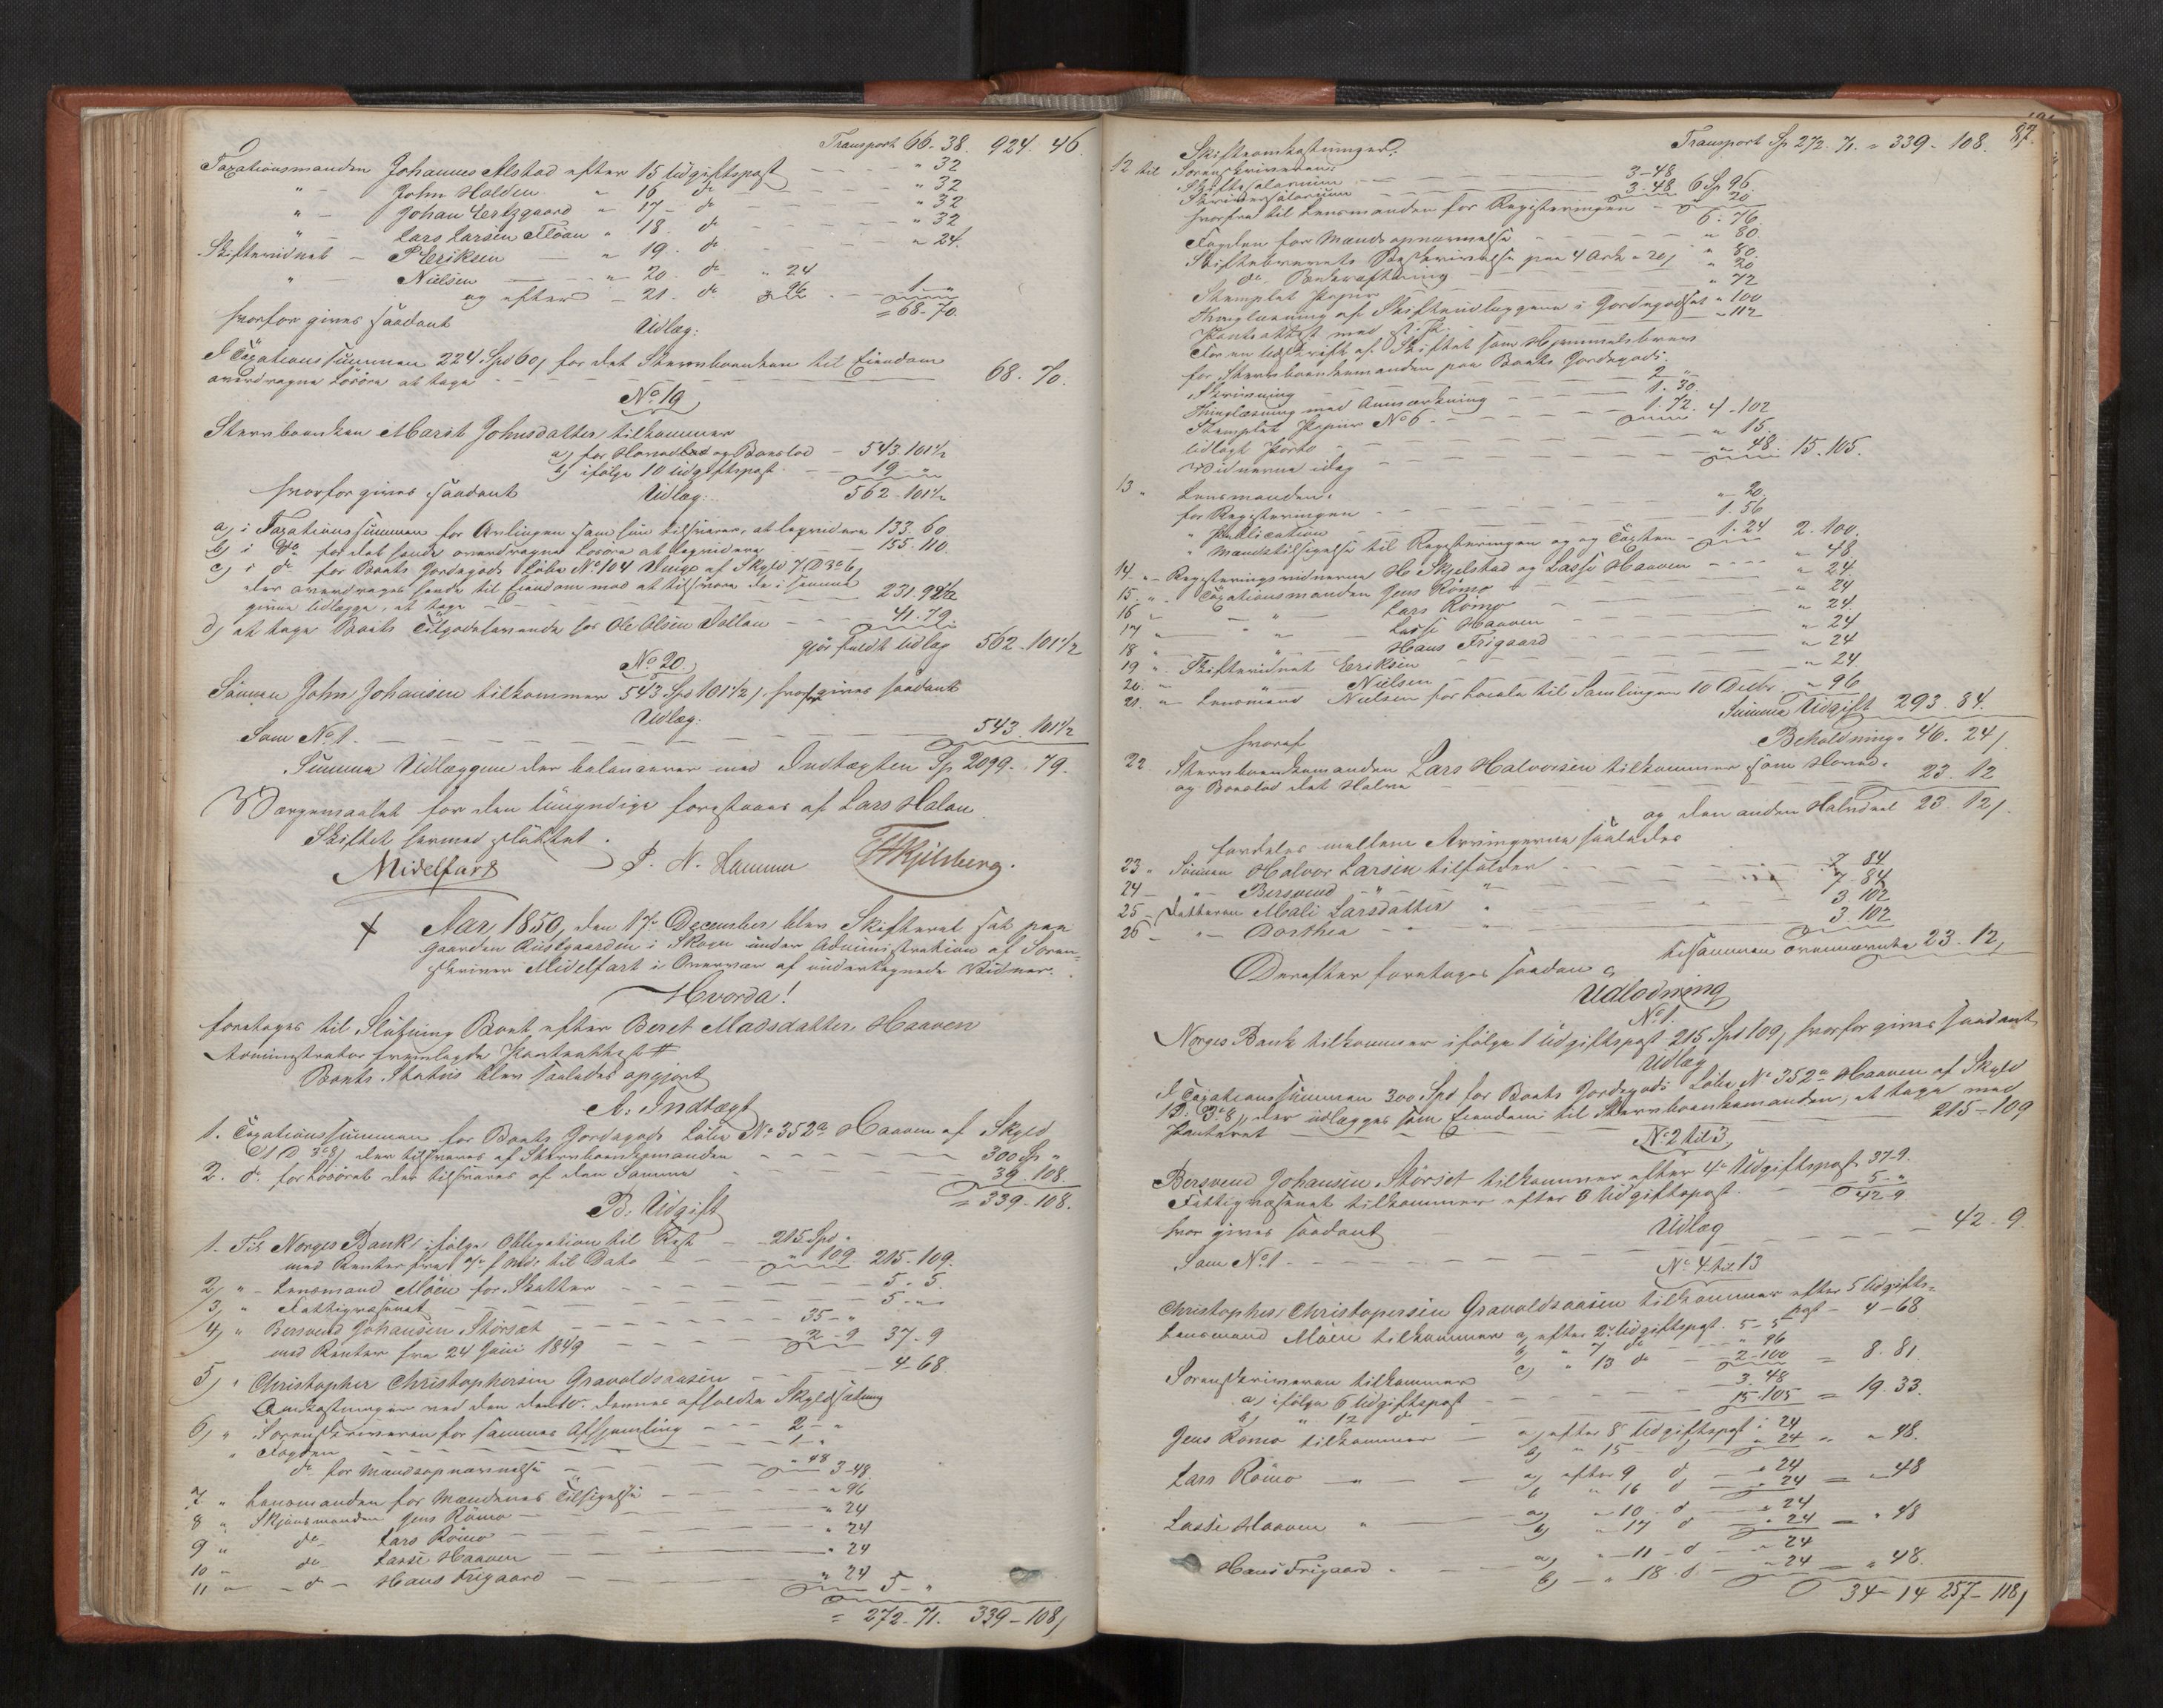 Transport 66-38. 924. 46.
Taxationsmanden Johannes Alstad efter 15 Udgiftspost - - - " 32
" - John Halden " 16 do - - - " 32
" - Johan Ertzgaard " 17 - do - - - " 32
" Lars Larsen Floan " 18. do - - - " 32
Skiftevidnet - P Eriksen - " 19. do - - - " 24.
" Nielsen - " 20. do " 24
og efter - 21. do " 96 - 1 "
hvorfor gives saadant = 68-70.
Udlæg:
I Taxationssummen 224 Spd 60 / for det Stervboenken til Eiendom
overdragne Løsøre at tage - - - 68. 70.
No 19
Stervboenken Marit Johnsdatter tilkommer
a) for Hovedlod og Boeslod - 543. 101 1/2
b) ifølge 10 Udgiftspost - - 19 - "
hvorfor gives saadant 562-101 1/2
Udlæg:
a) i Taxationssummen for Avlingen som hun tilsvarer, at liqvidere 133. 60
b) i do for det hende overdragne Løsøre at liqvidere - 155. 110.
c) i do for Boets Jordegods Løbe No 104 af Skyld
der overdrages hende til Eiendom mod at tilsvare de i samme
givne Udlægge, at tage - - - 231. 92 1/2
d) at tage Boets Tilgodehavende hos Ole Olsen - - 41. 79.
gjør fuldt Udlæg 562. 101 1/2
No 20.
Sønnen John Johansen tilkommer 543 Spd 101 1/2 /. hvorfor gives saadant
Udlæg:
Som No 1. - - - 543 101 1/2
Summa Udlæggene der balancerer med Indtægten Sp 2099. 79.
Værgemaalet for den umyndige forestaaes af Lars Halan
Skiftet hermed sluttet.
Midelfart P. N. Hammer
Aar 1850, den 17 December blev Skifteret sat paa
Gaarden i under Administration af Soren=
skriver Midelfart i Overvær af undertegnede Vidner.
Hvorda!
foretages til Slutning Boet efter Beret Madsdatter Haaven
Administrator fremlagde Pantattest #
Boets Status blev saaledes opgjort
A. Indtægt
1. Taxationssummen for Boets Jordegods Løbe No 352a Haaven af Skyld
1 D 3 8 / der tilsvares af Stervboenkemanden - - - 300 Sp "
2. do for Løsøret der tilsvares af den Samme - - 39. 108.
= 339-108.
B. Udgift
1. Til Norges Bank ifølge Obligation til Rest - 215 Spd "
med Renter fra til Dato - " 109. 215-109.
2) " - Lensmand Moen for Skatter - - - 5. 5.
3) " Fattigvæsenet - - - 5 - "
4) " Bersvend Johansen Størset - - - 35 - "
med Renter fra 24 Juni 1849 - - 2 - 9 37-9
5) " Christopher Christophersen Gravoldsaasen - - - 4-68
Omkostninger ved den dennes afholdte Skyldsætning
6) " Sorenskriveren for sammes Afhjemling - - 2 - "
" Fogden - - - 1 - "
do for Mandsopnævnelse - - - " 48 3-48.
7 " Lensmanden for Mændenes Tilsigelse - - - " 96
8 " Skjønsmanden Jens Rømo - - - " 24
9 " do Lars Rømo - - - " 24
10 " do Lasse Haaven - - - " 24
11 " - do - Hans Frigaard - - - " 24
5 - "
= 272-71. 339-108 /
87.
Transport Sp 272. 71. = 339-108.
Skifteomkostninger.
12 til Sorenskriveren:
Skiftesalarium - - - 3-48
Skriversalarium - - - 3-48 6 Sp 96.
hvorfra til Lensmanden for Registeringen - " 20
6. 76.
Fogden for Mandsopnævnelse - - - " 80.
Skiftebrevets Beskrivelse paa 4 Ark a 20 / " 80.
do Bekræftning - - " 20
Stemplet Papir - - " 72
Thinglæsning af Skifteudlæggene i Jordegodset " 100
Pantattest med st. P. - - " 112
For en Udskrift af Skiftet som Hjemmelsbrev
for Stervboenkemanden paa Boets Jordegods.
Skrivning - - - 2 "
Thinglæsning med Anmærkning - - - 1. 30.
Stemplet Papir No 6. - - - 1. 72. 4-102
Udlagt Porto - - - " 15.
Vidnerne idag - - - " 48. 15. 105.
13 " Lensmanden:
for Registeringen - - - " 20.
" Publication - - - 1. 56
" Mandstilsigelse til Registeringen og og Taxten - 1. 24 2. 100.
14. " Registeringsvidnerne H. Skjelstad og Lasse Haaven - - - " 48.
15. " Taxationsmanden Jens Rømo - - - " 24
16 " - " - Lars Rømo - - - " 24
17 " - " - Lasse Haaven - - - " 24.
18 " - " - Hans Frigaard - - - " 24
19 " Skiftevidnet Eriksen - - - " 24
20. " Nielsen - - - " 24
21. " Lensmand Nielsen for Locale til Samlingen 10 Decbr. " 96
Summa Udgift 293. 84.
hvoraf Beholdning: 46. 24 /.
22. Stervboenkemanden Lars Halvorsen tilkommer som Hoved-
og Boeslod det Halve - - - 23. 12
og den anden Halvdeel 23. 12 /.
fordeles mellem Arvingerne saaledes
23. Sønnen Halvor Larsen tilfalder - - - 7. 84
24 - " Bersvend - " - " - - - 7-84
25 - Datteren Mali Larsdatter " - - - 3. 102
26 - " - Dorthea - " - - - 3. 102
tilsammen ovennævnte 23. 12,
Derefter foretages saadan
Udlodning
No 1.
Norges Bank tilkommer ifølge 1 Udgiftspost 215 Spd 109 / hvorfor gives saadant
Udlæg
I Taxationssummen 300 Spd for Boets Jordegods Løbe No 352a Haaven af Skyld
1 D. 3 8 / der udlægges som Eiendom til Stervboenkemanden, at tage med
Panteret - - - 215-109
No 2 til 3,
Bersvend Johansen Størset tilkommer efter 4de Udgiftspost 37-9.
Fattigvæsenet tilkommer efter 3 Udgiftspost. - 5 - "
42-9
hvor gives saadant
Udlæg
Som No 1 - - - 42-9.
No 4 til 13
Christopher Christopersen Gravoldsaasen tilkommer efter 5 Udgifts-
post - 4-68
Lensmand Moen tilkommer a) efter 2. Udgiftspost. 5-5
b) " 7 do - " 96
c) " 13 do - 2-100 = 8. 81.
Sorenskriveren tilkommer
a) ifølge 6 Udgiftspost - - - 3. 48
b) " 12 do - - - 15-105 = 19. 33.
Jens Rømo tilkommer - a) efter 8 Udgiftspost " 24
b) " 15 do - " 24 " " 48.
Lars Rømo - " - a) efter 9 do - " 24
b " 16 do - " 24 = " 48
Lasse Haaven " - a) " 10 - d - " 24
b) " 17 d - " 24 = " 48
Hans Frigaard " - a) " - 11 - d - " 24
b) - " 18. d. - " 24 - " 48.
34-14 257-118 /